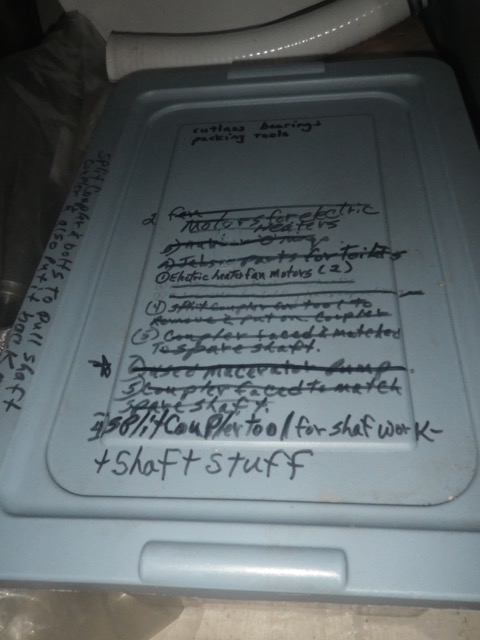 cutlass bearings
packing tools
2 Fan
Motors for electric
Heaters
2) Jabsco parts for toilets
① Electric heater fan motors (2)
(4) split coupler tool to
remove & put on coupler
(5) Coupler faced & matched
To spare shaft.
1) used macerator pump
3) Coupler faced to match
spare shaft.
4) split Coupler tool for shaf work-
+ shaft stuff
split Coupler & bolts To Pull shaft
also put it back